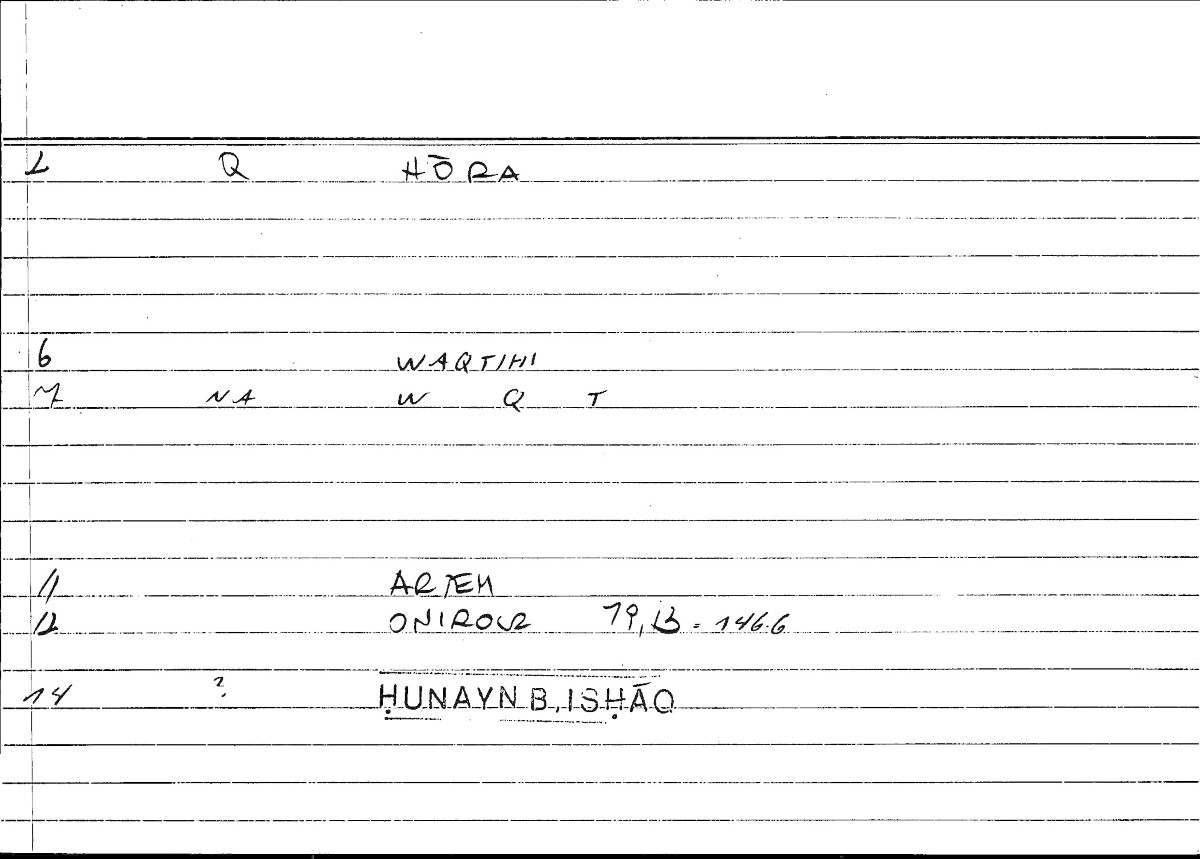 2 Q HŌRA
6 WAQTIHI
7 NA W Q T
11 ARTEM
12 ONIROCR 79,13 = 146.6
14 ? ḤUNAYN B. ISḤĀQ